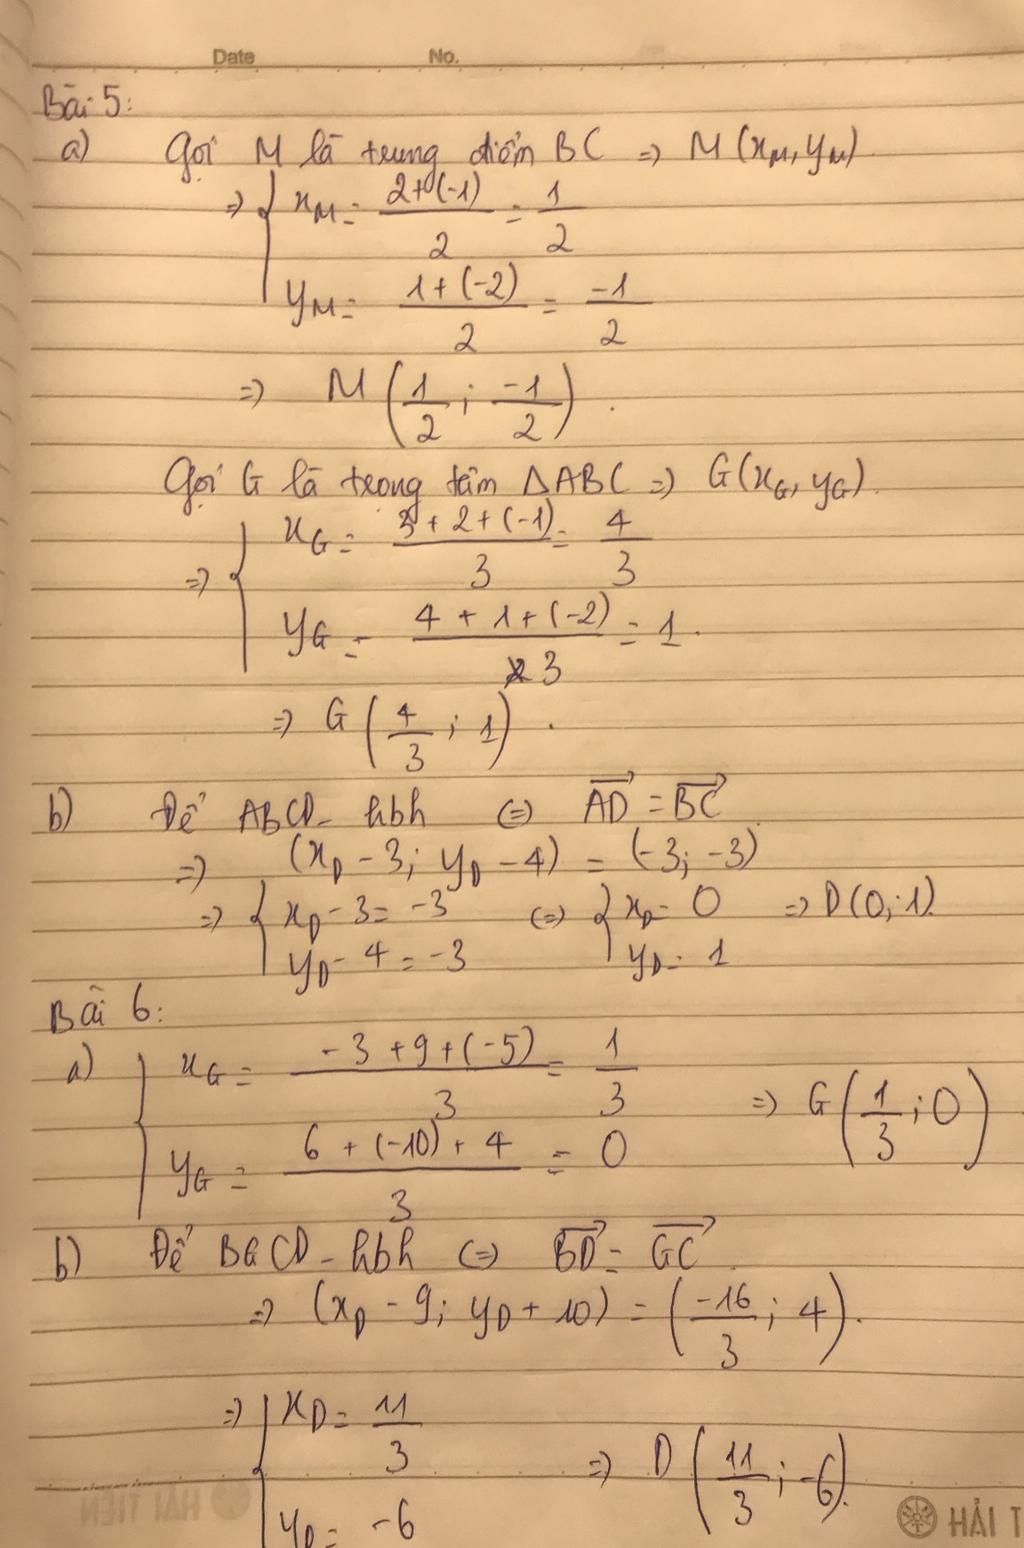 Date No.
Bài 5:
a) Gọi M là trung điểm BC => M(xM, yM)
=> { xM = (2+(-1))/2 = 1/2
yM = (1+(-2))/2 = -1/2
=> M(1/2; -1/2).
Gọi G là trọng tâm ΔABC => G(xG, yG).
=> { xG = (3+2+(-1))/3 = 4/3
yG = (4+1+(-2))/3 = 1.
=> G(4/3; 1).
b) Để ABCD - hbh <=> AD→ = BC→
=> (xD - 3; yD - 4) = (-3; -3)
=> { xD - 3 = -3 <=> { xD = 0 => D(0; 1).
yD - 4 = -3 yD = 1
Bài 6:
a) { xG = (-3+9+(-5))/3 = 1/3
=> G(1/3; 0)
yG = (6+(-10)+4)/3 = 0
b) Để BGCD - hbh <=> BD→ = GC→.
=> (xD - 9; yD + 10) = (-16/3; 4).
=> { xD = 11/3
=> D(11/3; -6).
yD = -6
HẢI TIẾN
HẢI T